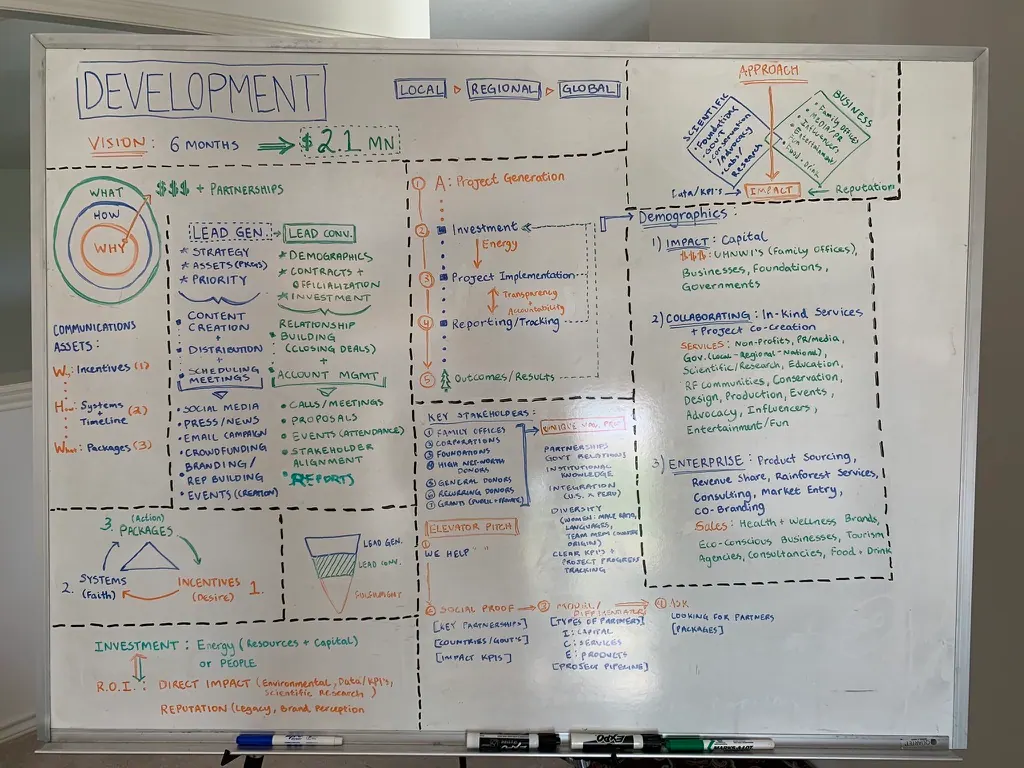 DEVELOPMENT
LOCAL ▷ REGIONAL ▷ GLOBAL
VISION: 6 MONTHS ⇒ $2.1 MN
WHAT
HOW
WHY
$$$ + PARTNERSHIPS
COMMUNICATIONS
ASSETS:
Why: Incentives (1)
How: Systems +
Timeline (2)
What: Packages (3)
LEAD GEN.
* STRATEGY
* ASSETS (PKGS)
* PRIORITY
• CONTENT
CREATION
+
• DISTRIBUTION
+
• SCHEDULING
MEETINGS
• SOCIAL MEDIA
• PRESS/NEWS
• EMAIL CAMPAIGN
• CROWDFUNDING
BRANDING/
• REP BUILDING
• EVENTS (CREATION)
LEAD CONV.
* DEMOGRAPHICS
* CONTRACTS +
OFFICIALIZATION
* INVESTMENT
RELATIONSHIP
• BUILDING
(CLOSING DEALS)
+
• ACCOUNT MGMT
• CALLS/MEETINGS
• PROPOSALS
• EVENTS (ATTENDANCE)
• STAKEHOLDER
ALIGNMENT
• REPORTS
3. (Action)
PACKAGES
2. SYSTEMS
(Faith)
INCENTIVES 1.
(Desire)
LEAD GEN.
LEAD CONV.
FULFILLMENT
INVESTMENT: Energy (Resources + Capital)
or PEOPLE
R.O.I.: DIRECT IMPACT (Environmental, Data/KPI's,
Scientific Research)
REPUTATION (Legacy, Brand Perception
1 A: Project Generation
2 Investment
Energy
3 Project Implementation
Transparency
+
Accountability
4 Reporting/Tracking
5 Outcomes/Results
KEY STAKEHOLDERS:
1 FAMILY OFFICES
2 CORPORATIONS
3 FOUNDATIONS
4 HIGH NET-WORTH
DONORS
5 GENERAL DONORS
6 RECURRING DONORS
7 GRANTS (PUBLIC + PRIVATE)
UNIQUE VAL. PROP
PARTNERSHIPS
GOV'T RELATIONS
INSTITUTIONAL
KNOWLEDGE
INTEGRATION
(U.S. + PERU)
DIVERSITY
(WOMEN: MALE RATIO,
LANGUAGES,
TEAM MEM COUNTRY
ORIGINS)
CLEAR KPI'S +
PROJECT PROGRESS
TRACKING
ELEVATOR PITCH
1
WE HELP " "
2 SOCIAL PROOF
[KEY PARTNERSHIPS]
[COUNTRIES/GOVT'S]
[IMPACT KPIS]
3 MODEL/
DIFFERENTIATOR
[TYPES OF PARTNERS]
I: CAPITAL
C: SERVICES
E: PRODUCTS
[PROJECT PIPELINE]
4 ASK
LOOKING FOR PARTNERS
[PACKAGES]
APPROACH
SCIENTIFIC
• Foundations
• GOV'T
• Conservation
/Advocacy
• Labs/
Research
BUSINESS
• Family Offices
• Media/PR
• Influencers
• Entertainment/
Fun
• Food + Drink
Data/KPI's → IMPACT ← Reputation
Demographics:
1) IMPACT: Capital
$$$: UHNWI's (Family Offices),
Businesses, Foundations,
Governments
2) COLLABORATING: In-Kind Services
+ Project Co-creation
SERVICES: Non-Profits, PR/media,
Gov. (Local-Regional-National),
Scientific/Research, Education,
RF Communities, Conservation,
Design, Production, Events,
Advocacy, Influencers,
Entertainment/Fun
3) ENTERPRISE: Product Sourcing,
Revenue Share, Rainforest Services,
Consulting, Market Entry,
Co-Branding
Sales: Health + Wellness Brands,
Eco-Conscious Businesses, Tourism
Agencies, Consultancies, Food + Drink
EXPO
EXPO
MARKS-A-LOT
QUARTET